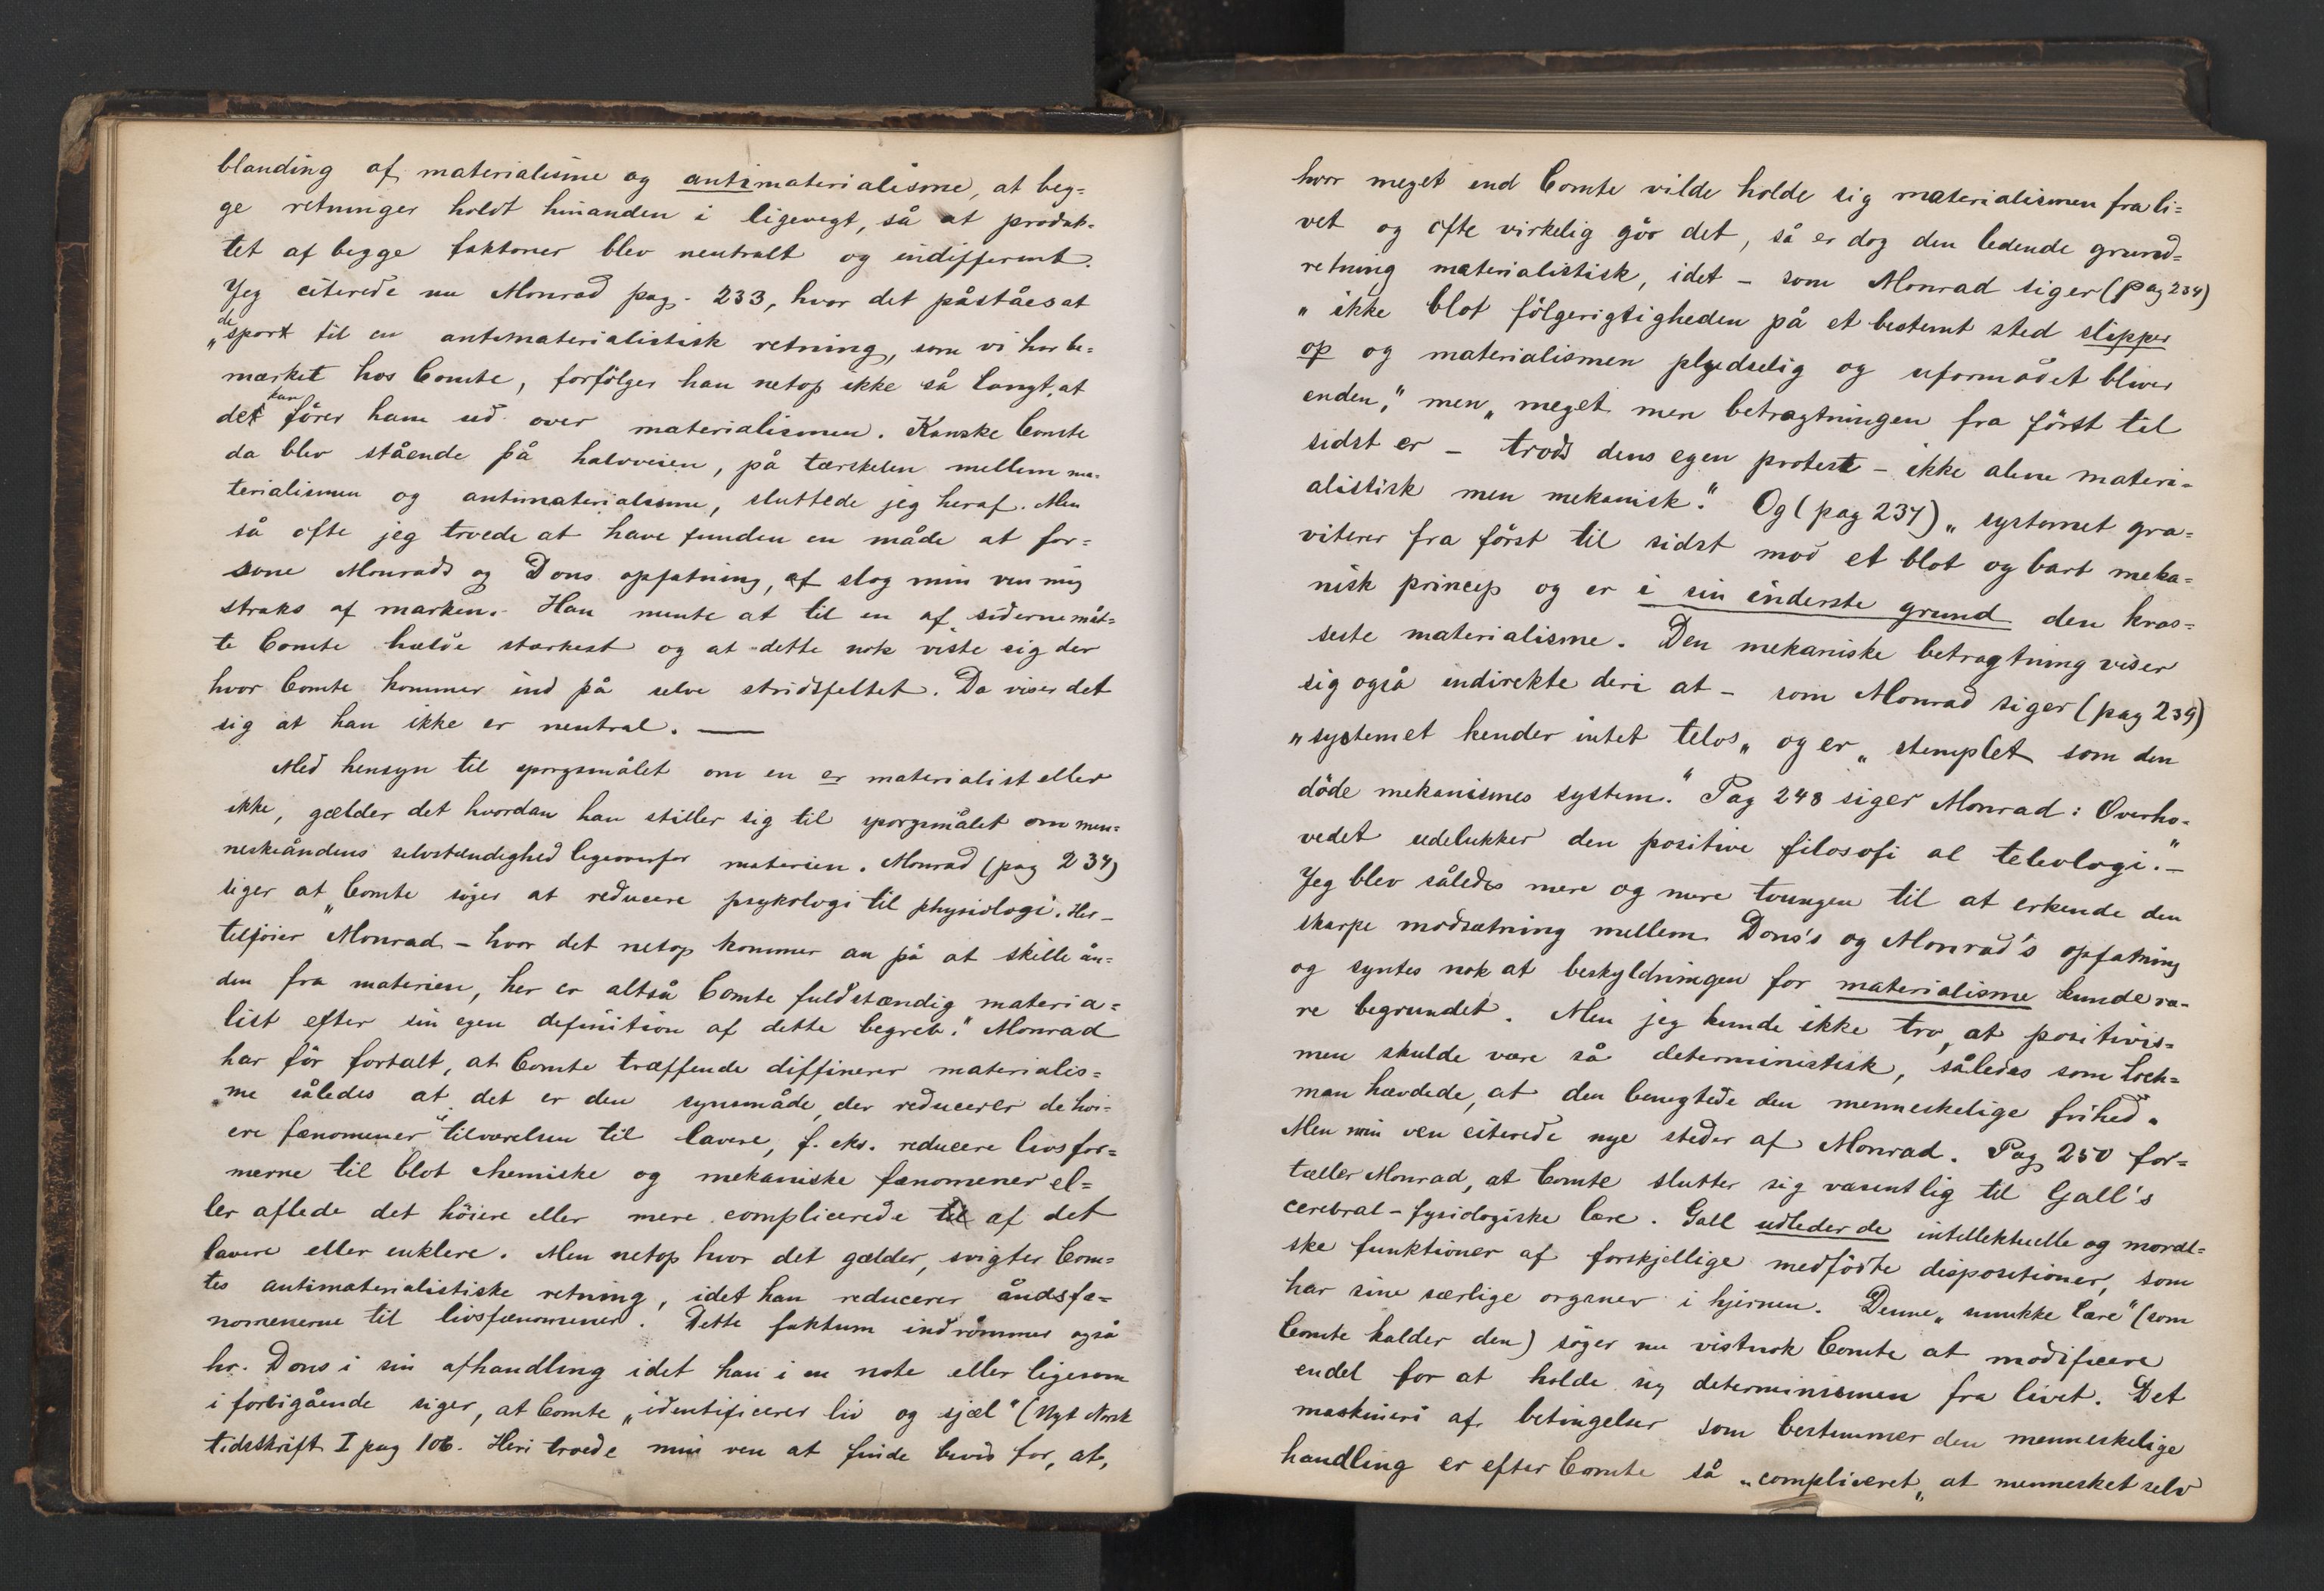 blanding af materialisme og antimaterialisme, at beg=
ge retninger holdt hinanden i ligevegt, så at produk-
tet af begge faktorer blev neutralt og indifferent.
Jeg citerede nu Monrad pag. 233, hvor det påståes at
„de sport til en antimaterialistisk retning, som vi har be=
mærket hos Comte, forfölger han netop ikke så langt, at
det kan förer ham ud over materialismen. Kanske Comte
da blev stående på halvveien, på tærskelen mellem ma-
terialismen og antimaterialisme, sluttede jeg heraf. Men
så ofte jeg troede at have funden en måde at for=
sone Monrads og Dons opfatning, af slog min ven mig
straks af marken. Han mente at til en af siderne måt=
te Comte hælde stærkest og at dette nok viste sig der
hvor Comte kommer ind på selve stridsfeltet. Da viser det
sig at han ikke er neutral. —
Med hensyn til sporgsmålet om en er materialist eller
ikke, gælder det hvordan han stiller sig til sporgsmålet om men=
neskeåndens selvstændighed ligeoverfor materien. Monrad (pag 234)
siger at „Comte söger at reducere psykologi til physiologi. Her –
tilföier Monrad – hvor det netop kommer an på at skille ån=
den fra materien, her er altså Comte fuldstændig materia=
list efter sin egen definition af dette begreb." Monrad
har för fortalt, at Comte træffende diffinerer materialis=
me således at det er den synsmåde, der reducerer de höi=
ere fænomener i tilværelsen til lavere, f. eks. reducere livsfor=
merne til blot chemiske og mekaniske fænomener el=
ler aflede det höiere eller mere complicerede til af det
lavere eller enklere. Men netop hvor det gælder, svigter Com=
tes antimaterialistiske retning, idet han reducerer åndsfæ=
nomenerne til livsfænomener. Dette faktum indrömmer også
hr. Dons i sin afhandling idet han i en note eller ligesom
i forbigående siger, at Comte „identificerer liv og sjæl" (Nyt Norsk
tidsskrift I pag 106. Heri troede min ven at finde bevis for, at,
hvor meget end Comte vilde holde sig materialismen fra li=
vet og ofte virkelig gör det, så er dog den ledende grund=
retning materialistisk, idet – som Monrad siger (pag 234)
„ ikke blot fölgerigtigheden på et bestemt sted slipper
op og materialismen plydselig og uformådet bliver
enden," men „meget mer betragtningen fra först til
sidst er – trods dens egen protest – ikke alene materi-
alistisk men mekanisk." Og (pag 237) „ systemet gra=
viterer fra först til sidst mod et blot og bart meka=
nisk princip og er i sin inderste grund den kras=
seste materialisme. Den mekaniske betragtning viser
sig også indirekte deri at – som Monrad siger (pag 239)
„systemet kender intet telos„ og er „ stemplet som den
döde mekanismes system." Pag 248 siger Monrad: Overho-
vedet udelukker den positive filosofi al teleologi." –
Jeg blev således mere og mere tvungen til at erkende den
skarpe modsætning mellem Dons's og Monrad's opfatning
og syntes nok at beskyldningen for materialisme kunde væ-
re begrundet. Men jeg kunde ikke tro, at positivis=
men skulde være så deterministisk, således som Loch=
man hævdede, at den benegtede den menneskelige frihed.
Men min ven citerede nye steder af Monrad. Pag 250 for=
tæller Monrad, at Comte slutter sig væsentlig til Gall's
cerebral-fysiologiske lære. Gall udleder de intellektuelle og moral=
ske funktioner af forskjellige medfödte dispositioner, som
har sine særlige organer i hjernen. Denne „ smukke lære" (som
Comte kalder den) söger nu vistnok Comte at modificere
endel for at holde sig determinismen fra livet. Det
maskineri af betingelser som bestemmer den menneskelige
handling er efter Comte så „compliceret„ at mennesket selv